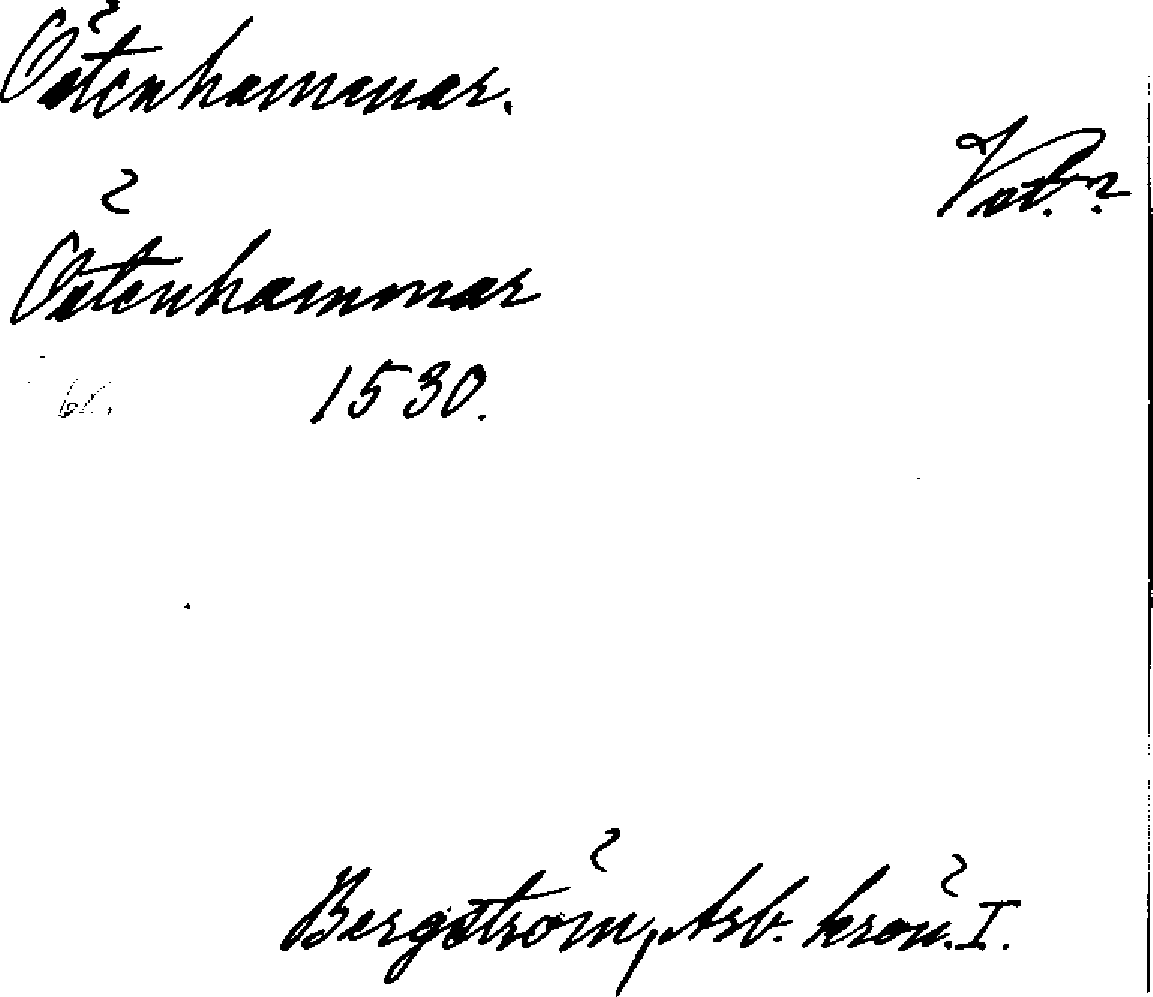 Östenhammar.
Vat.?
Östenhammar
1530.
Bergström, Arb. krön. I.